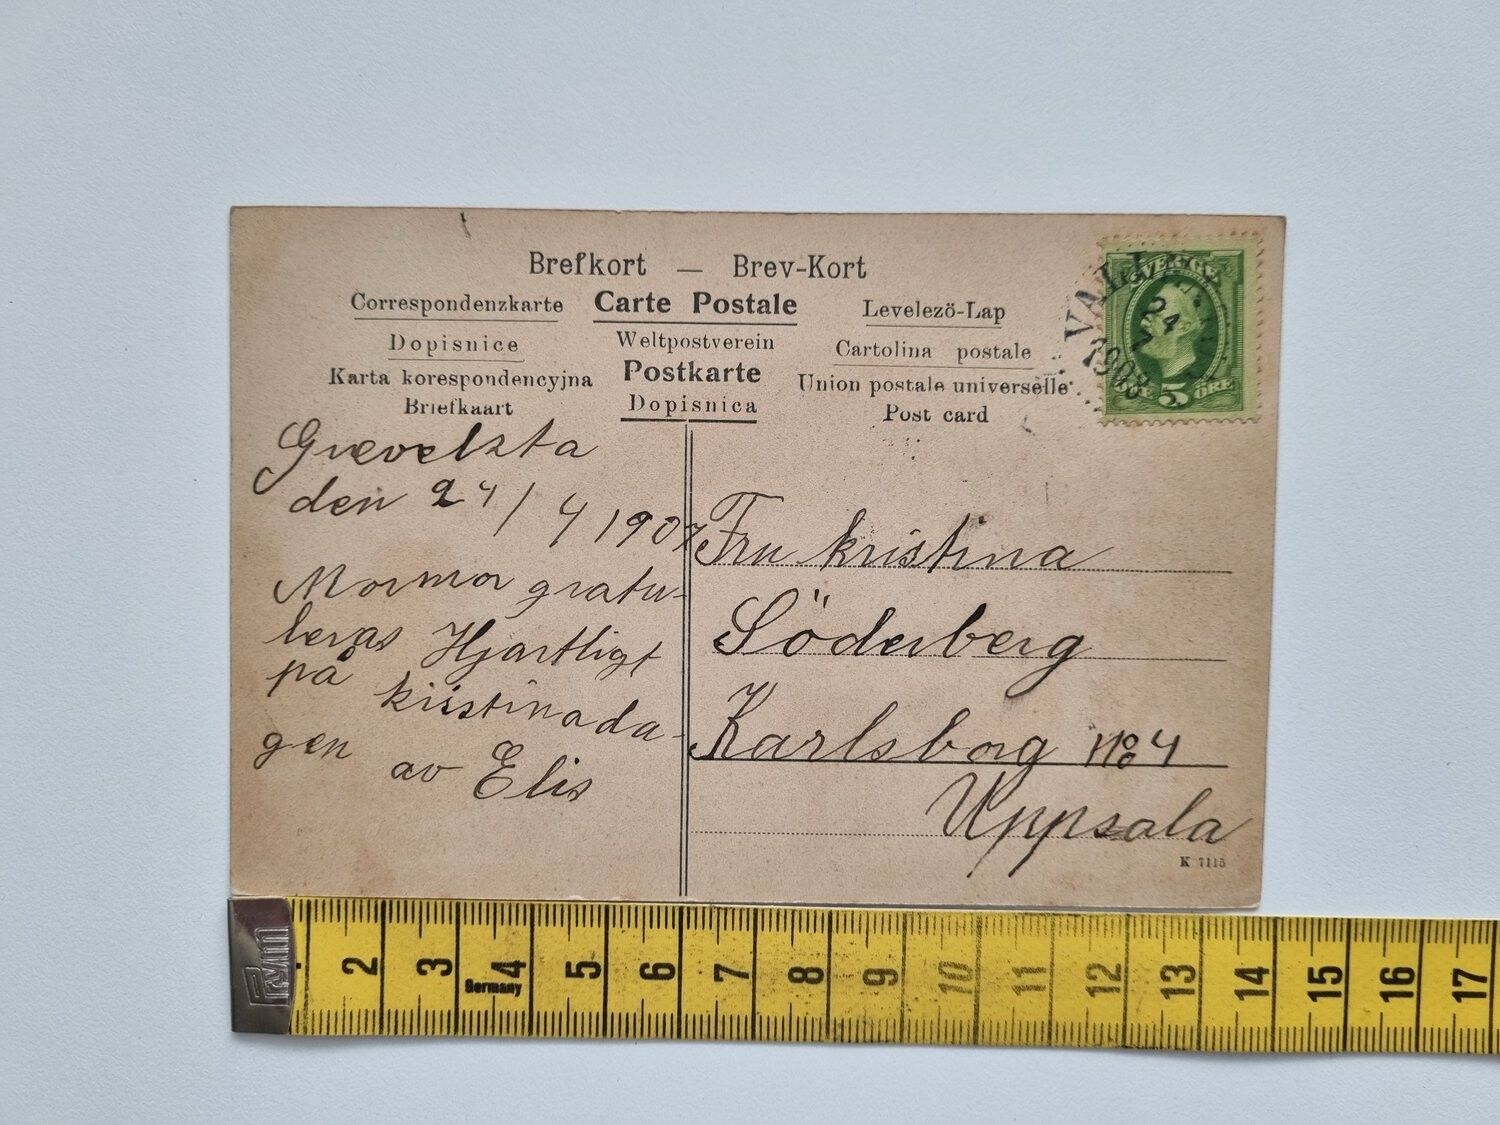 Brefkort — Brev-Kort
Correspondenzkarte Carte Postale Levelezö-Lap
Dopisnice Weltpostverein Cartolina postale
Karta korespondencyjna Postkarte Union postale universelle
Briefkaart Dopisnica Post card
SVERIGE
24
4
1908
5 ÖRE
Grevelsta
den 24/4 1907
Mormor gratu-
leras Hjartligt
på kristinada-
gen
av Elis
Fru kristina
Söderberg
Karlsborg No 4
Uppsala
K 7115
Prym
2 3 4 5 6 7 8 9 10 11 12 13 14 15 16 17
Germany